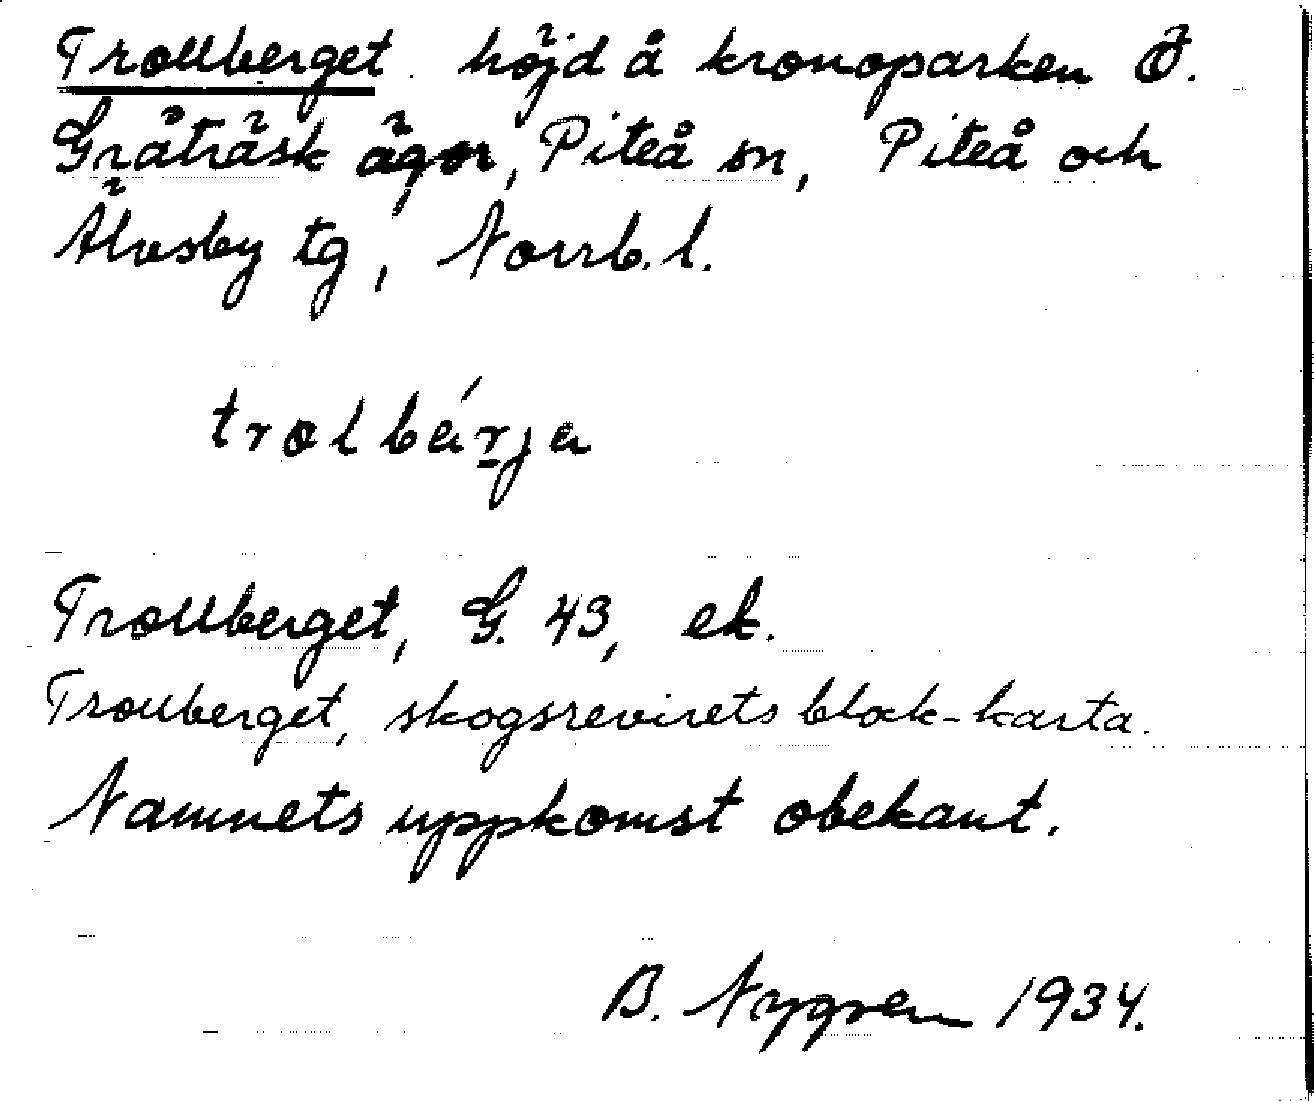 Trollberget höjd å kronoparken Ö.
Gråträsk ägor, Piteå sn, Piteå och
Älvsby tg, Norrb. l.
trolbárja
Trollberget, G. 43, ek.
Trollberget, skogsrevirets block-karta.
Namnets uppkomst obekant.
B. Nygren 1934.